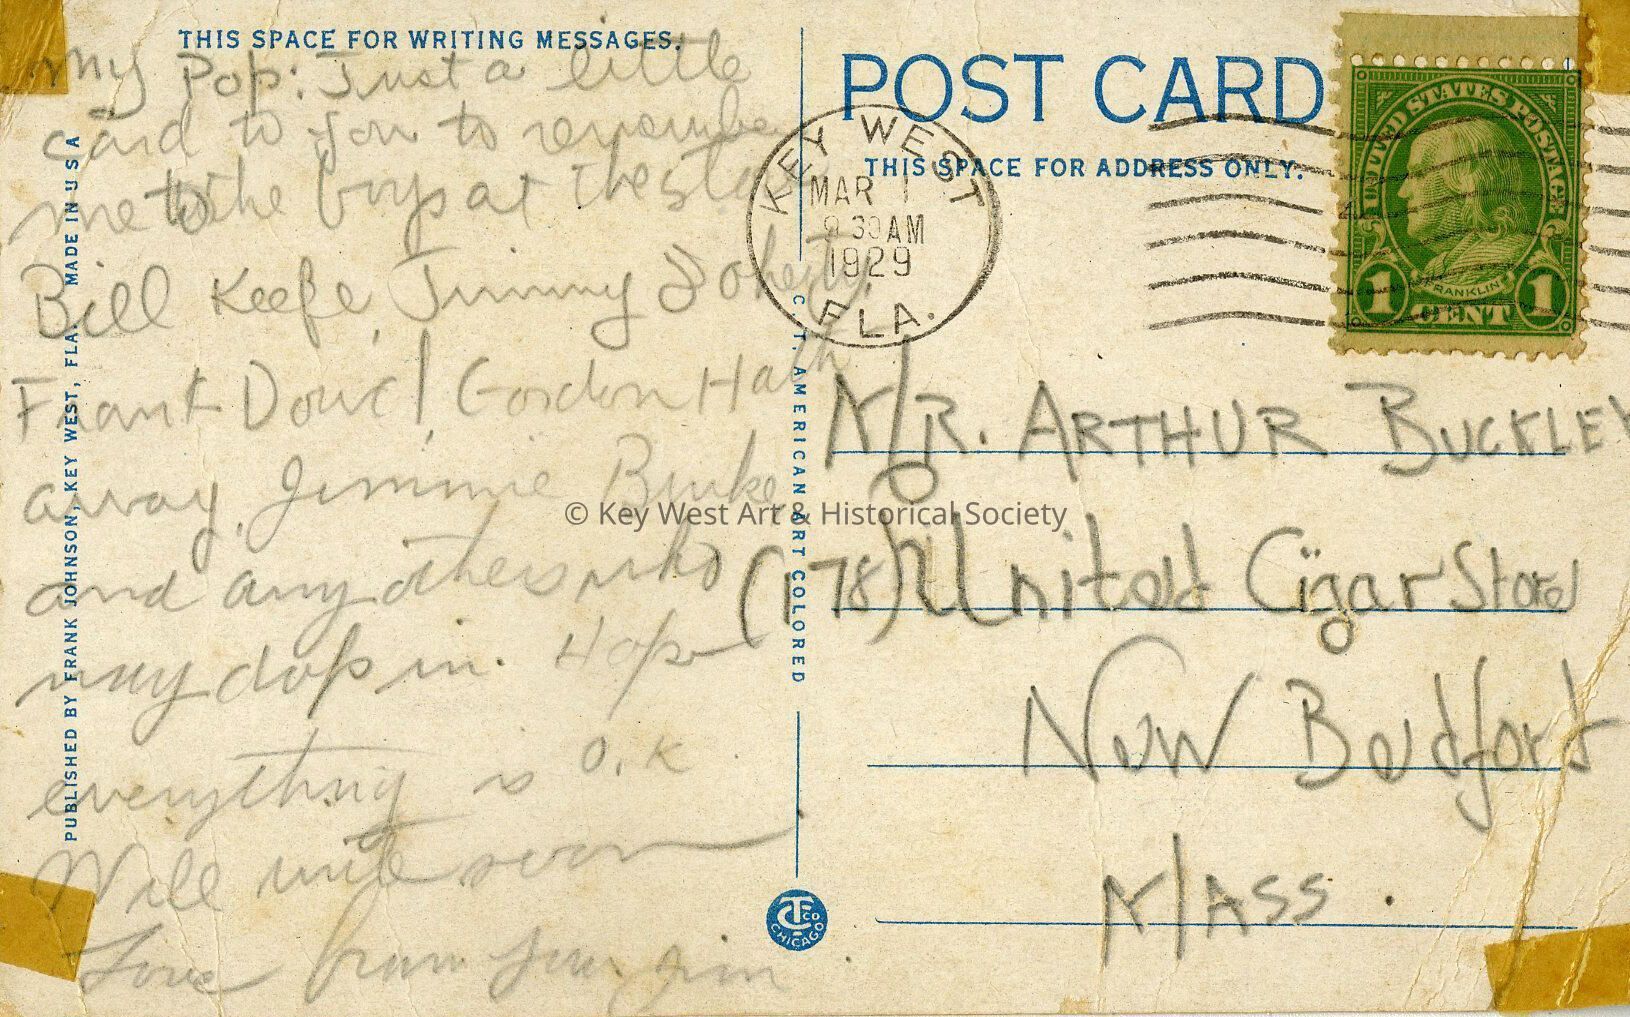 THIS SPACE FOR WRITING MESSAGES.
My Pop: Just a little
card to you to remember
me to the boys at the store
Bill Keefe, Jimmy Doherty,
Frank Dowd, Gordon Hath
away, Jimmie Burke
and any others who
may drop in. Hope
everything is O.K
Will write soon
Love from your Jim
PUBLISHED BY FRANK JOHNSON, KEY WEST, FLA. MADE IN U S A
C. T. AMERICAN ART COLORED
CT CO
CHICAGO
POST CARD
THIS SPACE FOR ADDRESS ONLY.
KEY WEST
MAR 1
9 30 AM
1929
FLA.
UNITED STATES POSTAGE
FRANKLIN
1 CENT 1
MR. ARTHUR BUCKLEY
(178) United Cigar Store
New Bedford
MASS.
© Key West Art & Historical Society